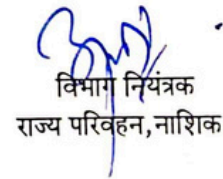 विभाग नियंत्रक
राज्य परिवहन, नाशिक